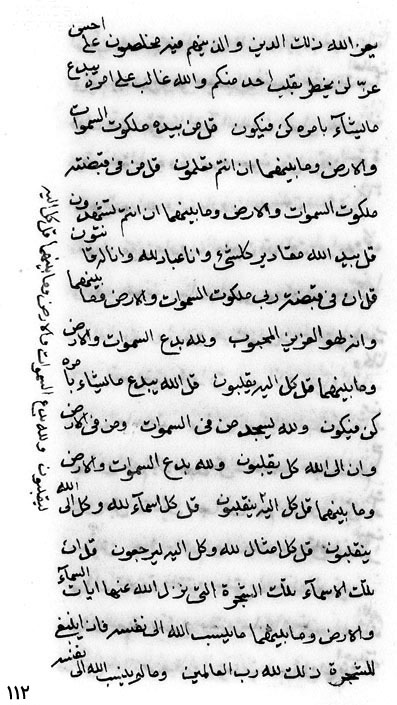 يعز الله ذلك الدين والذينهم فيه مخلصون على احسن
عز لن يخطر بقلب احد منكم والله غالب على امره يبدع
ما يشآء بامره كن فيكون قل من بيده ملكوت السموات
والارض وما بينهما ان انتم تعلمون قل من في قبضته
ملكوت السموات والارض وما بينهما ان انتم تشهدون
قل بيد الله مقادير كلشيء وانا عباد له وانا له قانتون
قل ان في قبضته ربي ملكوت السموات والارض وما بينهما
وانه لهو العزيز المحبوب ولله بدع السموات والارض
وما بينهما قل كل اليه يقلبون قل الله يبدع ما يشاء بامره
كن فيكون ولله يسجد من في السموات ومن في الارض
وان الى الله كل يقلبون ولله بدع السموات والارض
وما بينهما قل كل اليه ينقلبون قل كل اسمآء لله وكل الى الله
ينقلبون قل كل امثال لله وكل اليه ليرجعون قل ان
تلك الاسمآء تلك الشجرة التي نزل الله عنها ايات السمآء
والارض وما بينهما ما ينسب الله الى نفسه فان ينبغي
للشجرة ذلك لله رب العالمين وما لم ينسب الله الى نفسه
ليقلبون ولله بدع السموات والارض وما بينهما قل كل اليه
١١٢